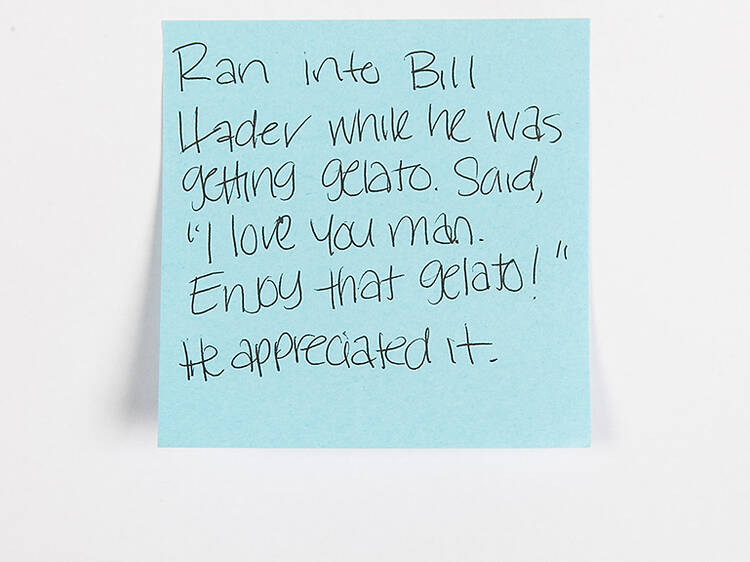 Ran into Bill
Hader while he was
getting gelato. Said,
"I love you man.
Enjoy that gelato!"
He appreciated it.